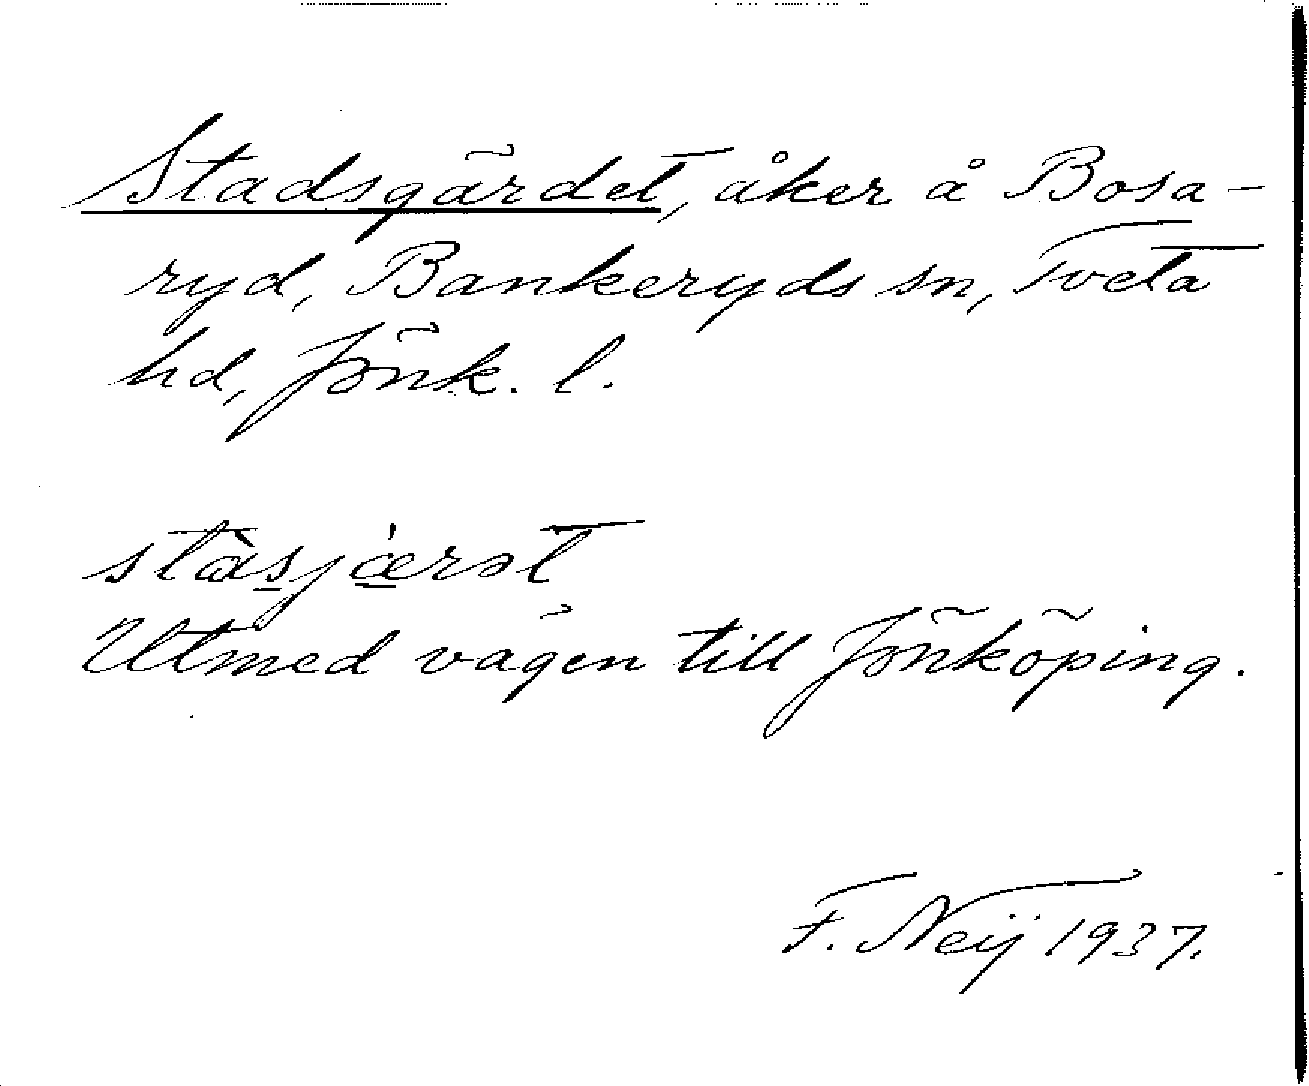 Stadsgärdet, åker å Bosa-
ryd, Bankeryds sn, Tveta
hd, Jönk. l.
stàsjæ̀rət
Utmed vägen till Jönköping.
F. Neij 1937.